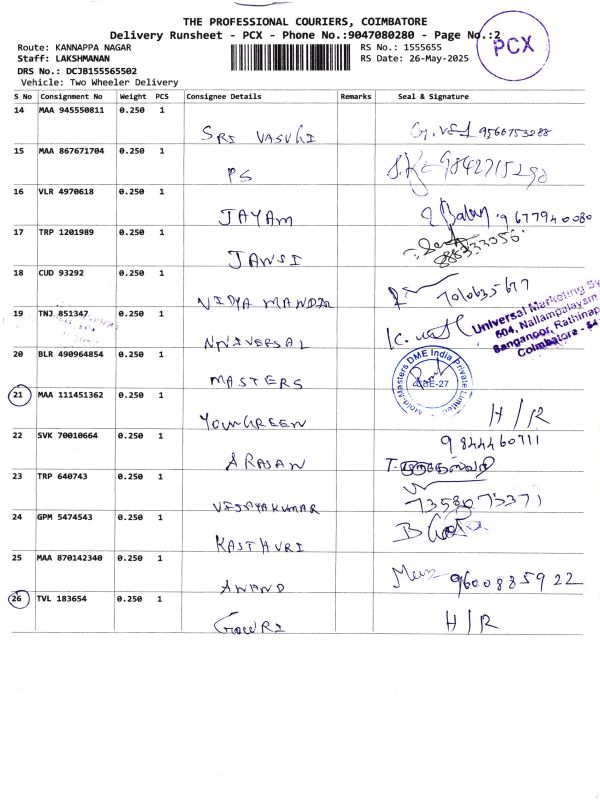 THE PROFESSIONAL COURIERS, COIMBATORE
Delivery Runsheet - PCX - Phone No.:9047080280 - Page No.:2
PCX
Route: KANNAPPA NAGAR
RS No.: 1555655
Staff: LAKSHMANAN
RS Date: 26-May-2025
DRS No.: DCJB155565502
Vehicle: Two Wheeler Delivery
S No Consignment No Weight PCS Consignee Details Remarks Seal & Signature
14 MAA 945550811 0.250 1
SRI VASUKI 9566753088
15 MAA 867671704 0.250 1
PS
16 VLR 4970618 0.250 1
JAYAM 9677940080
17 TRP 1201989 0.250 1
JANSI
18 CUD 93292 0.250 1
VIDYA MANDIR
19 TNJ 851347 0.250 1
UNIVERSAL
Universal Marketing
604, Nallampalayam
Sanganoor, Rathinap
Coimbatore -
20 BLR 490964854 0.250 1
MASTERS
Masters DME India Private Limited
CBE-27
21 MAA 111451362 0.250 1
YOUNGREEN H/R
22 SVK 70010664 0.250 1
9844460711
ARASAN
23 TRP 640743 0.250 1
VIJAYAKUMAR 7358075371
24 GPM 5474543 0.250 1
KASTHURI
25 MAA 870142340 0.250 1
ANAND 9600885922
26 TVL 183654 0.250 1
GOWRI H/R